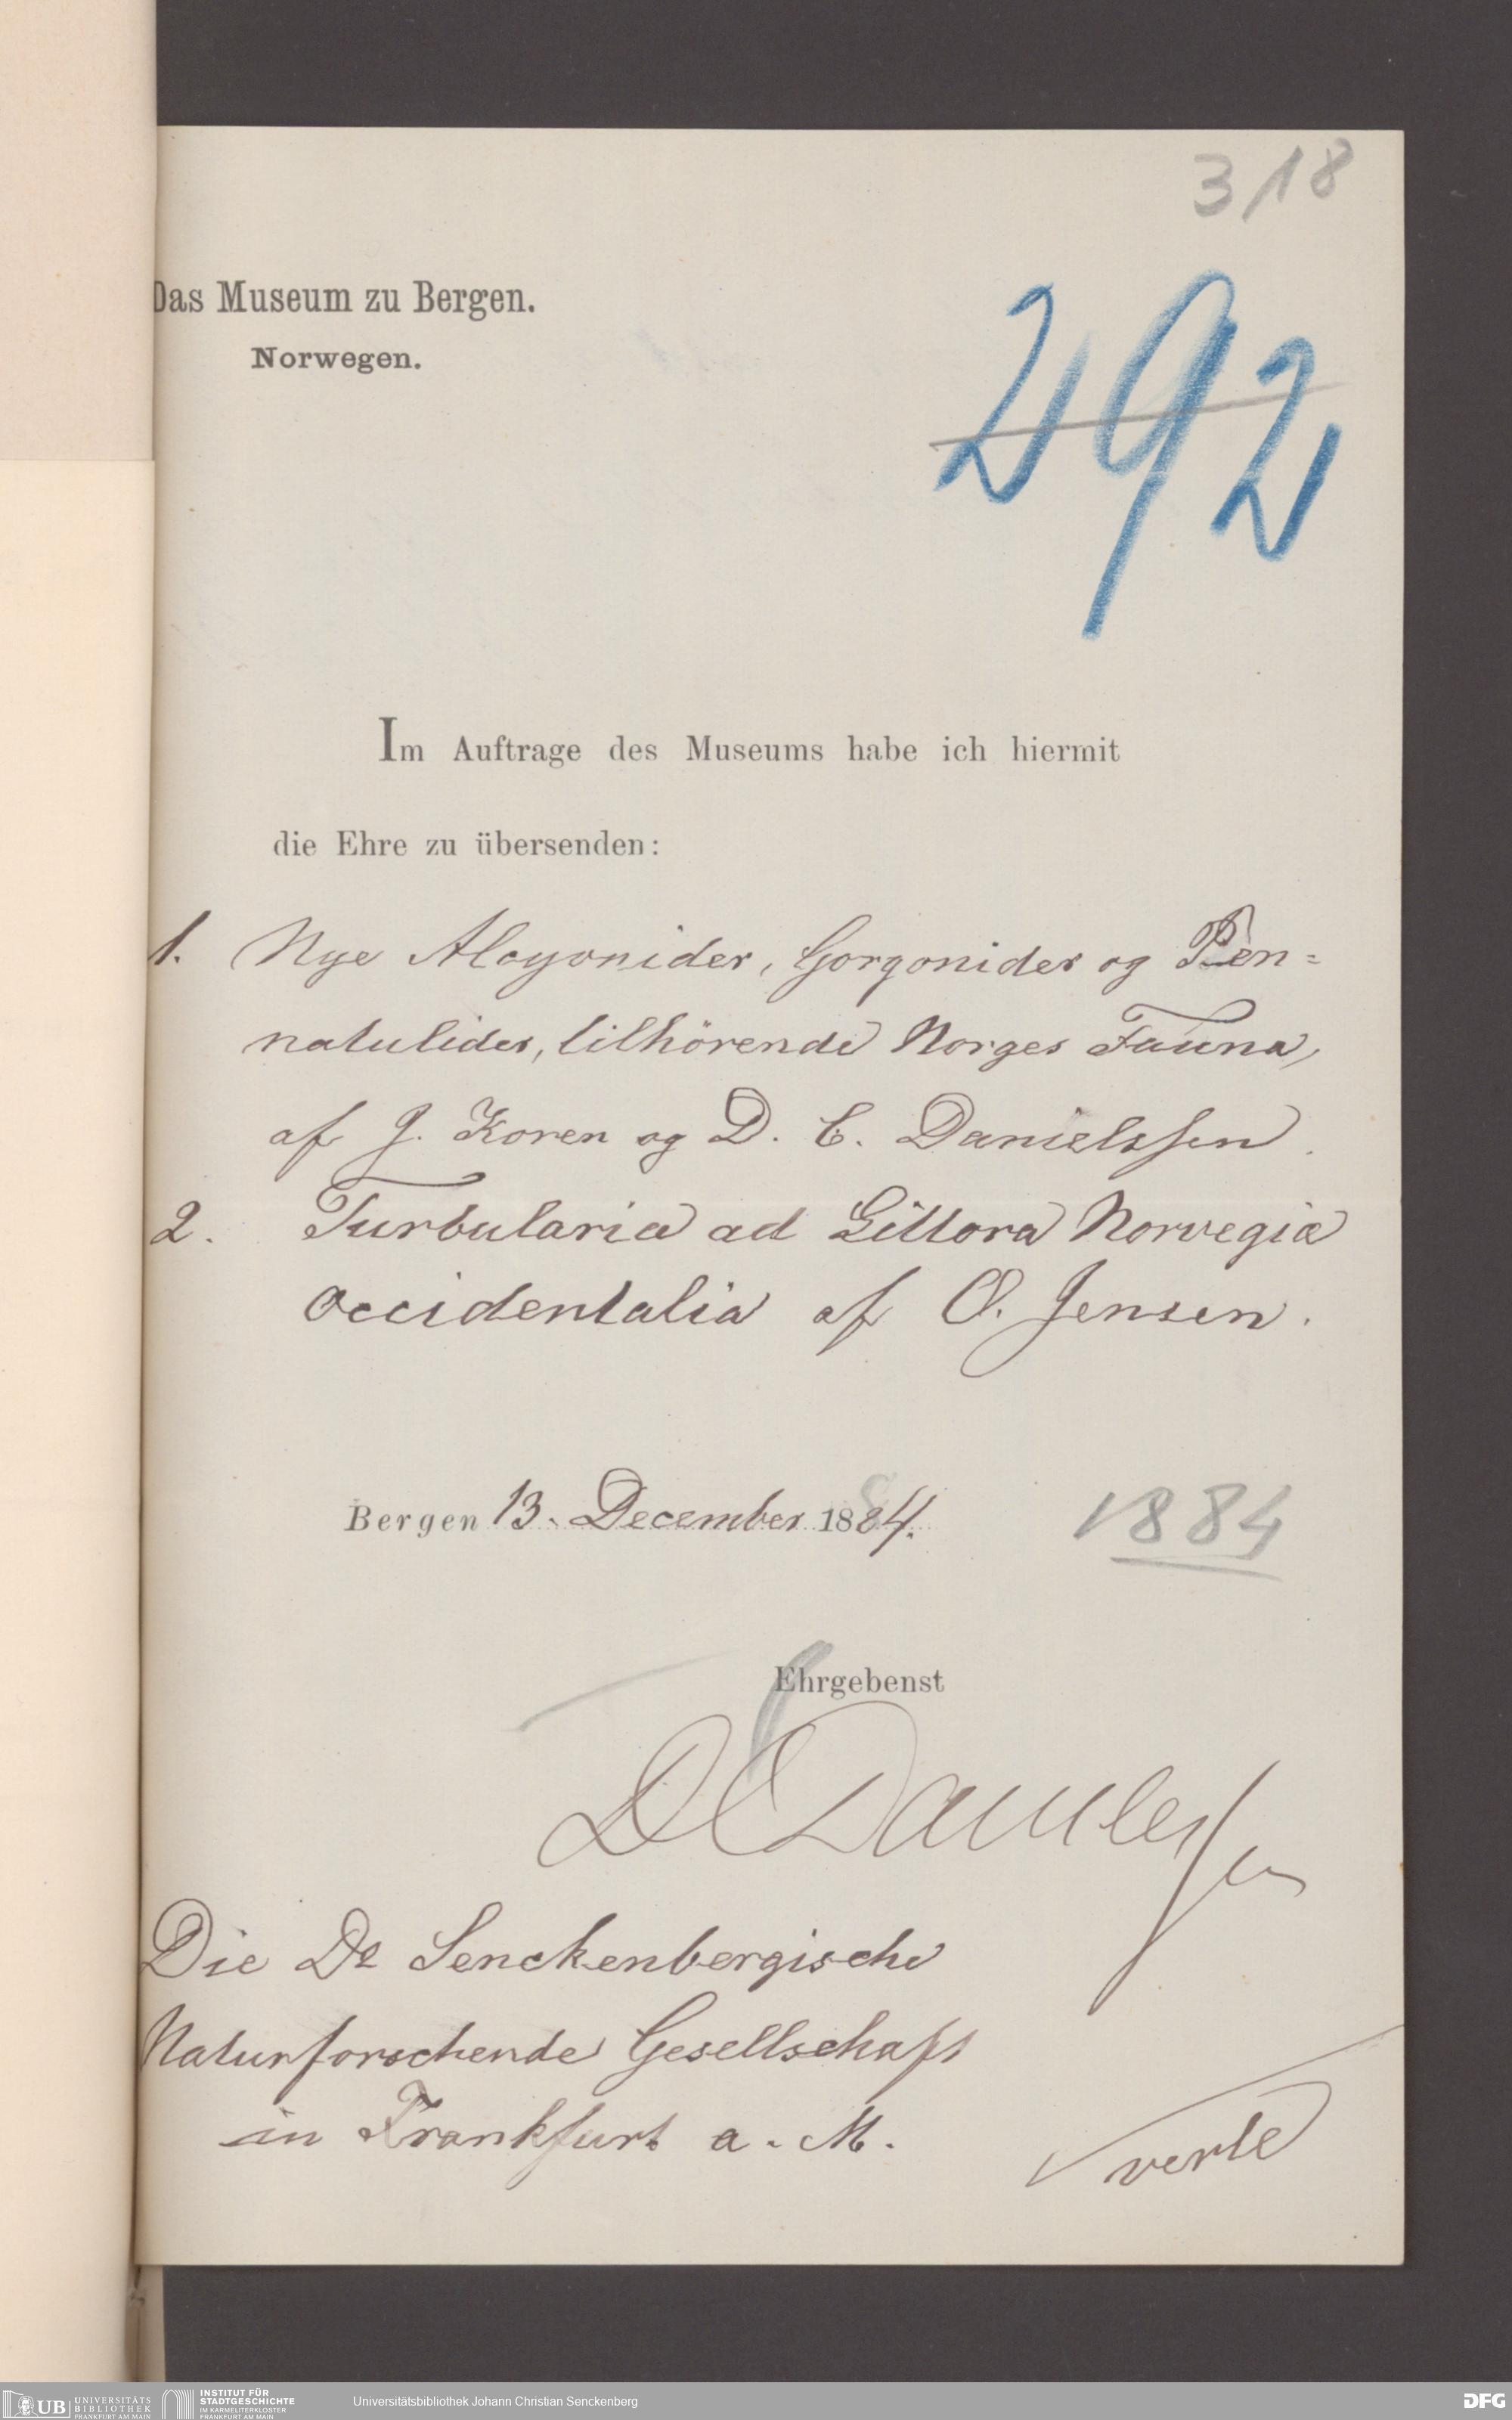 318
Das Museum zu Bergen.
Norwegen.
292
Im Auftrage des Museums habe ich hiermit
die Ehre zu übersenden:
1. Nye Alcyonider, Gorgonider og Pen=
natulider, tilhörende Norges Fauna,
af J. Koren og D. C. Danielssen.
2. Turbularia ad Littora Norvegiæ
Occidentalia af O. Jensen.
Bergen 13. December 1884.
1884
Ehrgebenst
D C Danielssen
Die Dr Senckenbergische
Naturforschende Gesellschaft
in Frankfurt a. M.
verte
UB UNIVERSITÄTS BIBLIOTHEK FRANKFURT AM MAIN
INSTITUT FÜR STADTGESCHICHTE IM KARMELITERKLOSTER FRANKFURT AM MAIN
Universitätsbibliothek Johann Christian Senckenberg
DFG